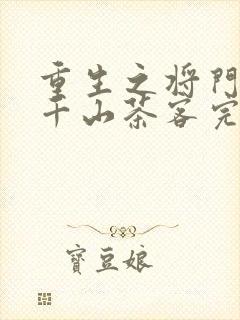 重生之将門
千山茶客完
寶豆娘